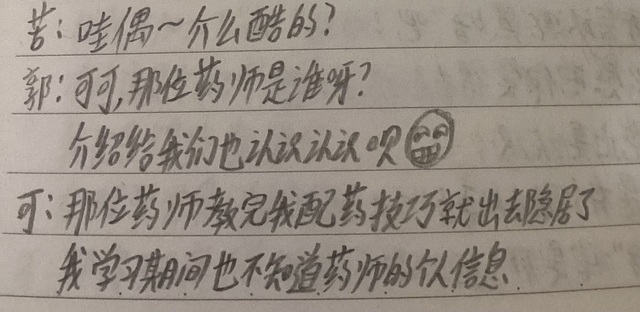 苦：哇偶～介么酷的？
郭：可可，那位药师是谁呀？
介绍给我们也认识认识呗
可：那位药师教完我配药技巧就出去隐居了
我学习期间也不知道药师的个人信息